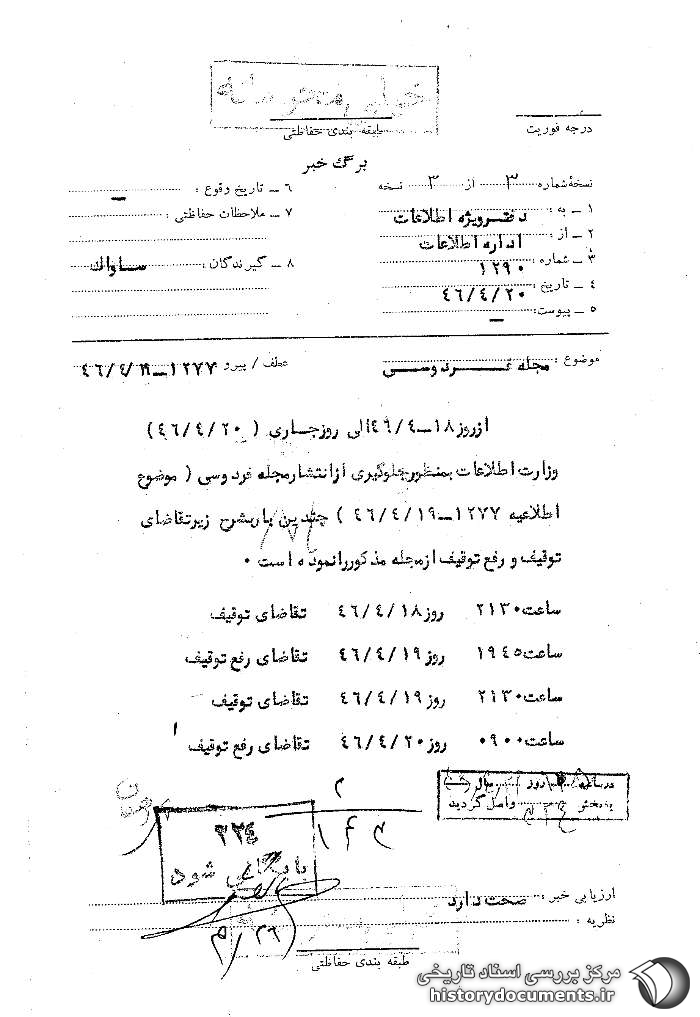 خیلی محرمانه
طبقه بندی حفاظتی
درجه فوریت
برگ خبر
نسخهٔ شماره ۳ از ۳ نسخه
۱ ــ به : دفتر ویژه اطلاعات
۲ ــ از : اداره اطلاعات
۳ ــ شماره : ۱۲۹۰
۴ ــ تاریخ : ۴۶/۴/۲۰
۵ ــ پیوست : ــ
۶ ــ تاریخ وقوع : ــ
۷ ــ ملاحظات حفاظتی :
۸ ــ گیرندگان : ساواک
موضوع : مجله فردوسی
عطف / پیرو ۱۲۷۷ــ۴۶/۴/۱۹
از روز ۱۸ــ۴۶/۴ الی روز جاری ( ۴۶/۴/۲۰ )
وزارت اطلاعات بمنظور جلوگیری از انتشار مجله فردوسی ( موضوع
اطلاعیه ۱۲۷۷ــ۴۶/۴/۱۹ ) چندین بار بشرح زیر تقاضای
توقیف و رفع توقیف از مجله مذکور را نموده است ۰
ساعت ۲۱۳۰ روز ۴۶/۴/۱۸ تقاضای توقیف
ساعت ۱۹۴۵ روز ۴۶/۴/۱۹ تقاضای رفع توقیف
ساعت ۲۱۳۰ روز ۴۶/۴/۱۹ تقاضای توقیف
ساعت ۰۹۰۰ روز ۴۶/۴/۲۰ تقاضای رفع توقیف
در ساعت روز
بخش واصل گردید
۲۲۴
بایگانی شود
ارزیابی خبر : صحت دارد
نظریه :
طبقه بندی حفاظتی
مرکز بررسی اسناد تاریخی
historydocuments.ir